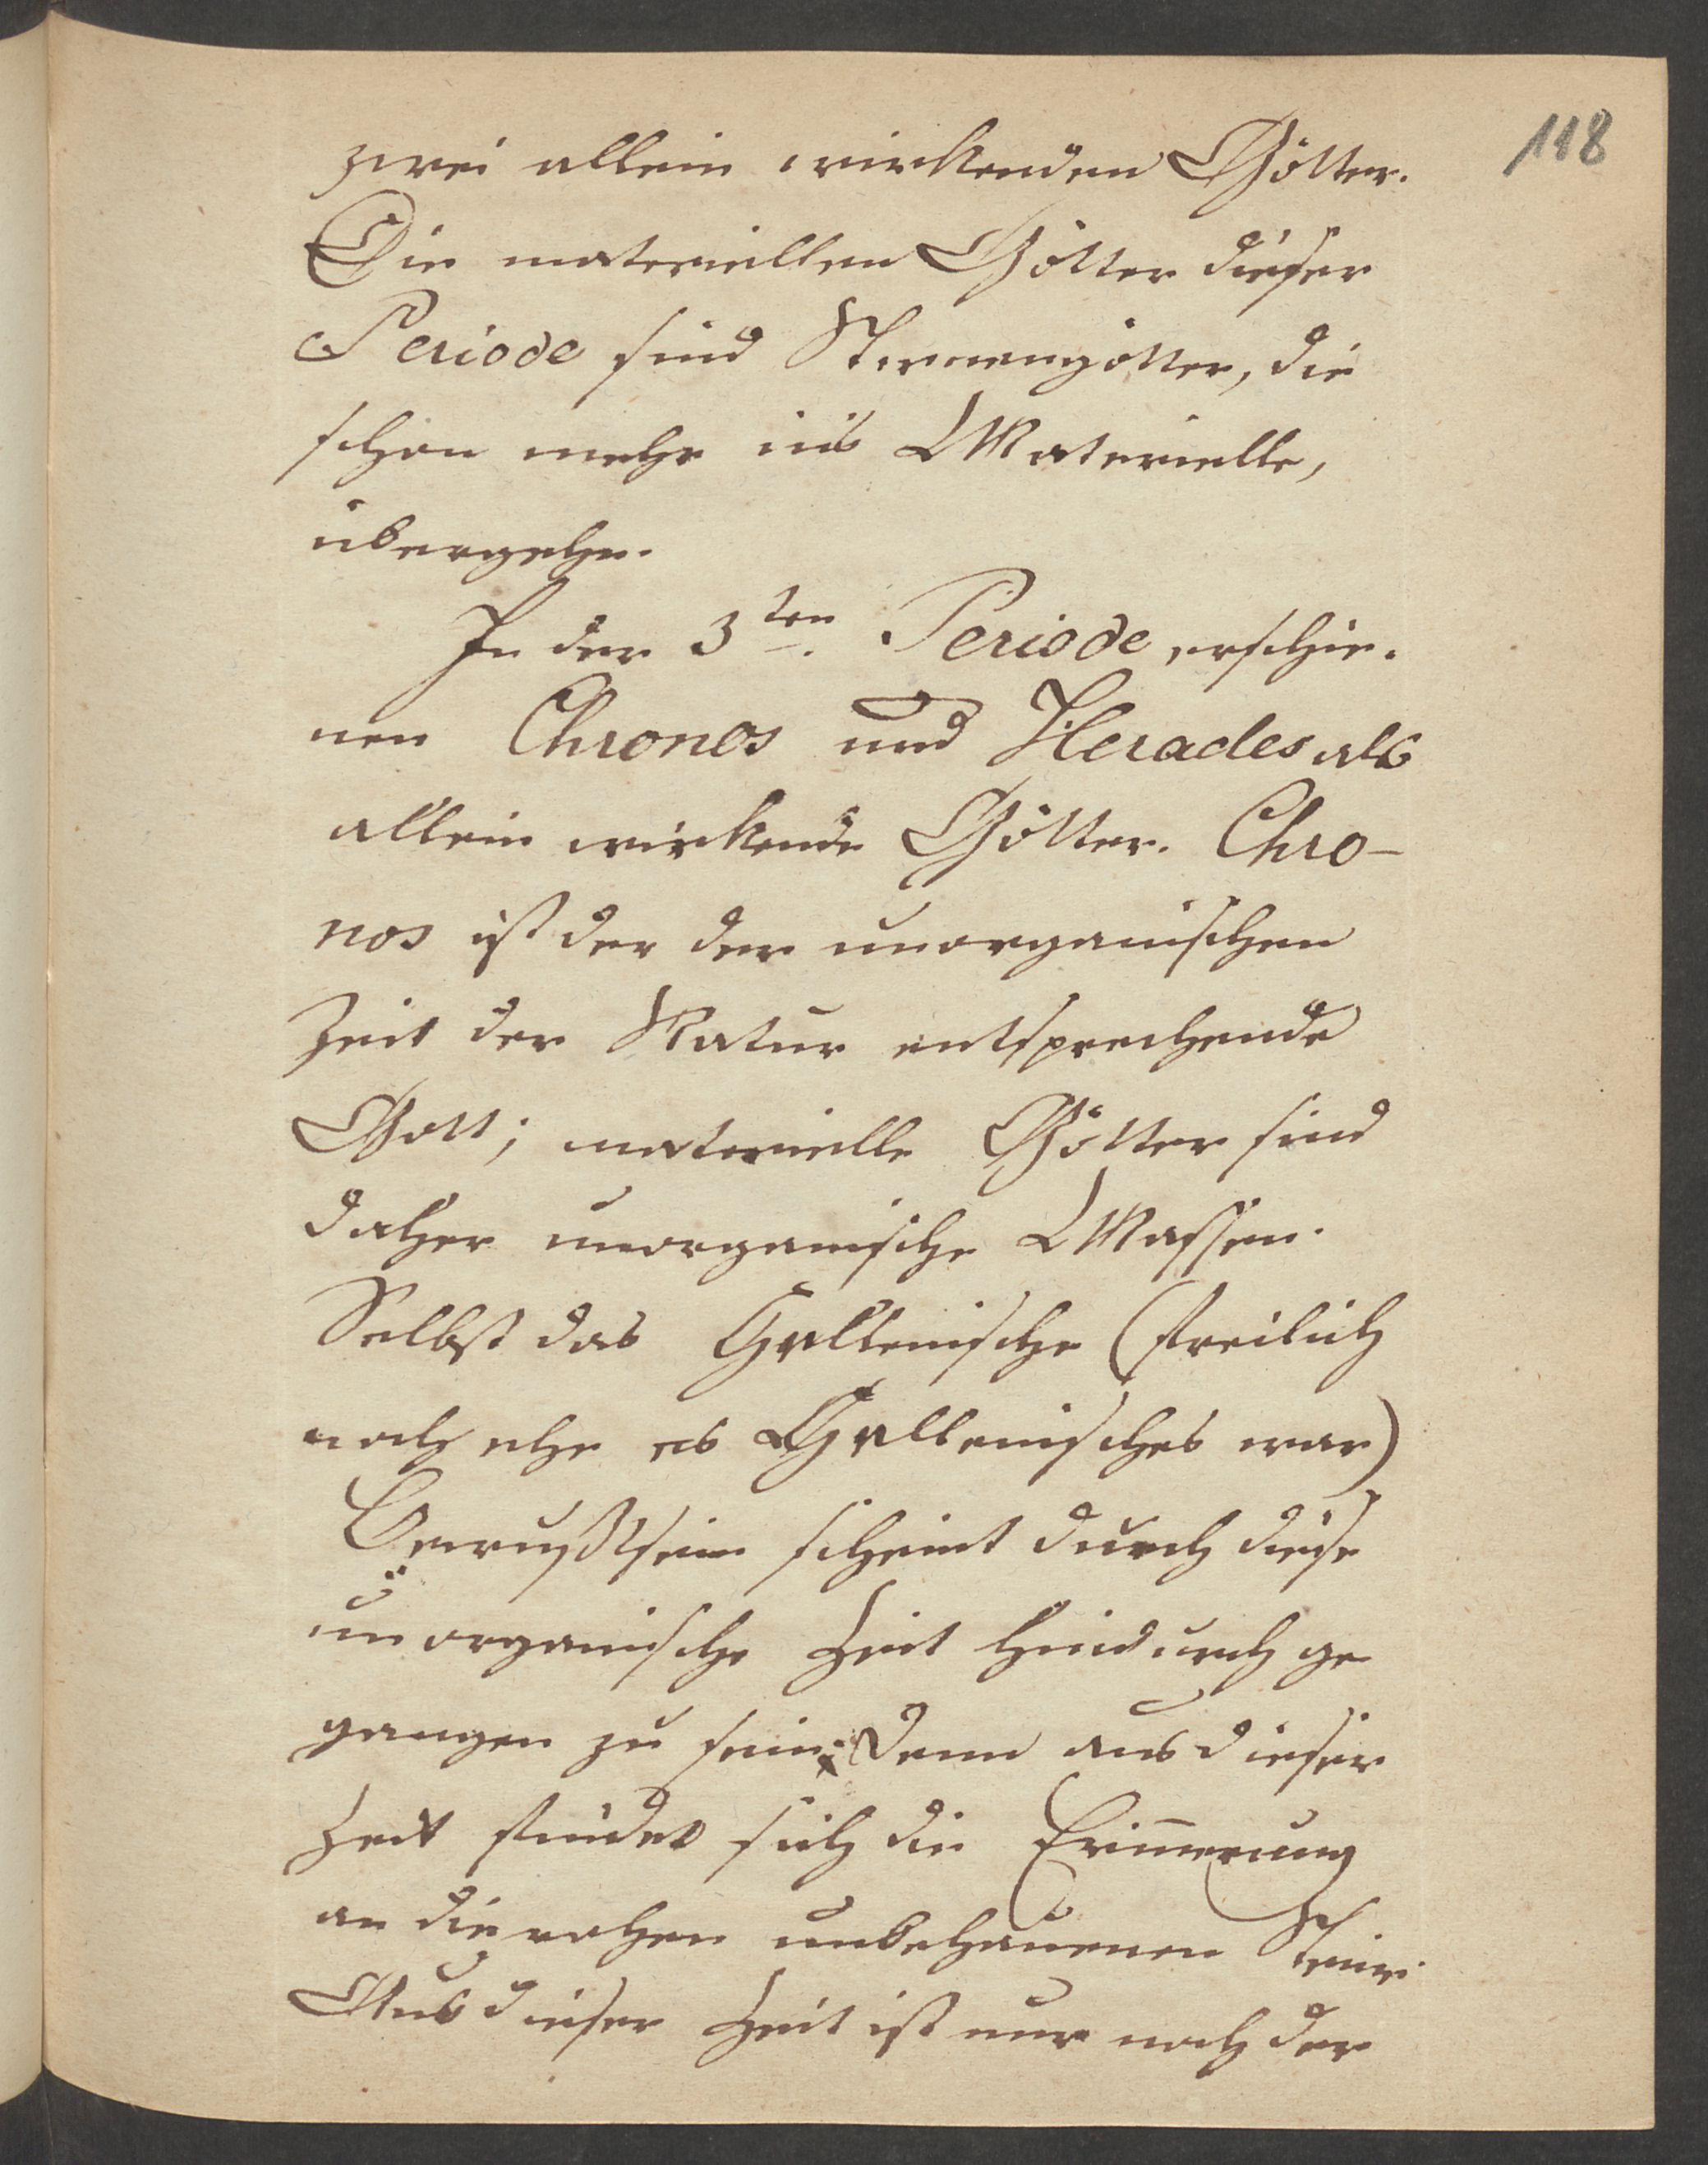 118
zwei allein wirkenden Götter.
Die materiellen Götter dieser
Periode sind Sternengötter, die
schon mehr ins Materielle,
übergehn.
In der 3ten. Periode erschie-
nen Chronos und Heracles als
allein wirkende Götter. Chro-
nos ist der der unorganischen
Zeit der Natur entsprechende
Gott; materielle Götter sind
daher unorganische Massen.
Selbst das Hellenische (freilich
noch ehe es Hellenisches war)
Bewußtsein scheint durch diese
unorganische Zeit hindurch ge
gangen zu sein; denn aus dieser
Zeit findet sich die Erinnerung
an die rohen unbehauenen Steine.
Aus dieser Zeit ist nur noch der